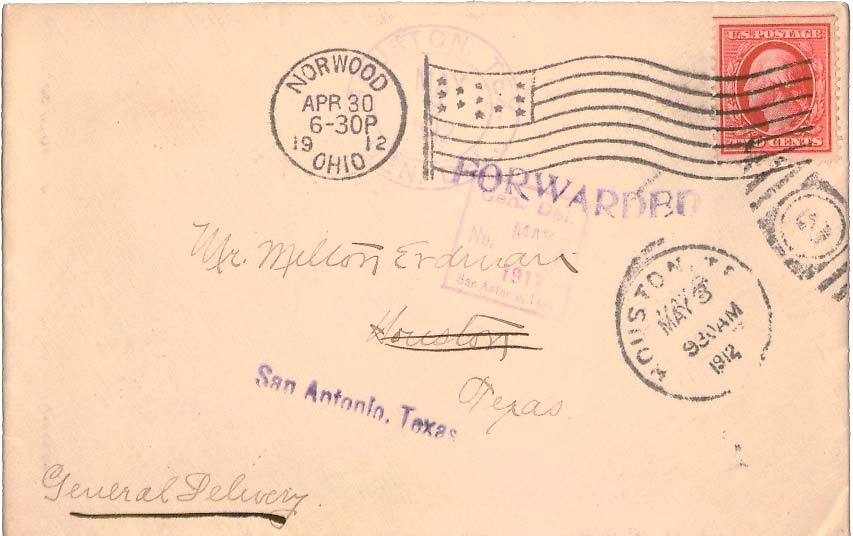 U.S. POSTAGE
CENTS
NORWOOD
APR 30
6-30P
19 12
OHIO
FORWARDED
Gen. Del.
No. MAY
1912
San Antonio, Tex.
Mr. Melton Erdman
Houston
Texas.
San Antonio, Texas
HOUSTON,
MAY 3
930AM
1912
General Delivery